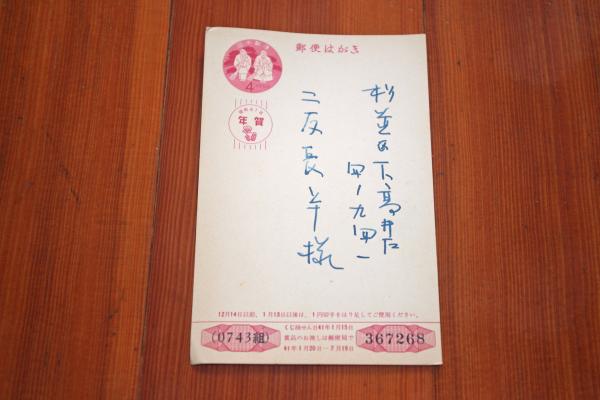 郵便はがき
4
年賀
杉並区下高井戸
四ー九四一
二反長半様
12月14日以前、1月13日以後は、1円切手をはり足してご使用ください。
(0743組)
くじ抽せん日41年1月15日
賞品のお渡しは郵便局で
41年1月20日―7月19日
367268